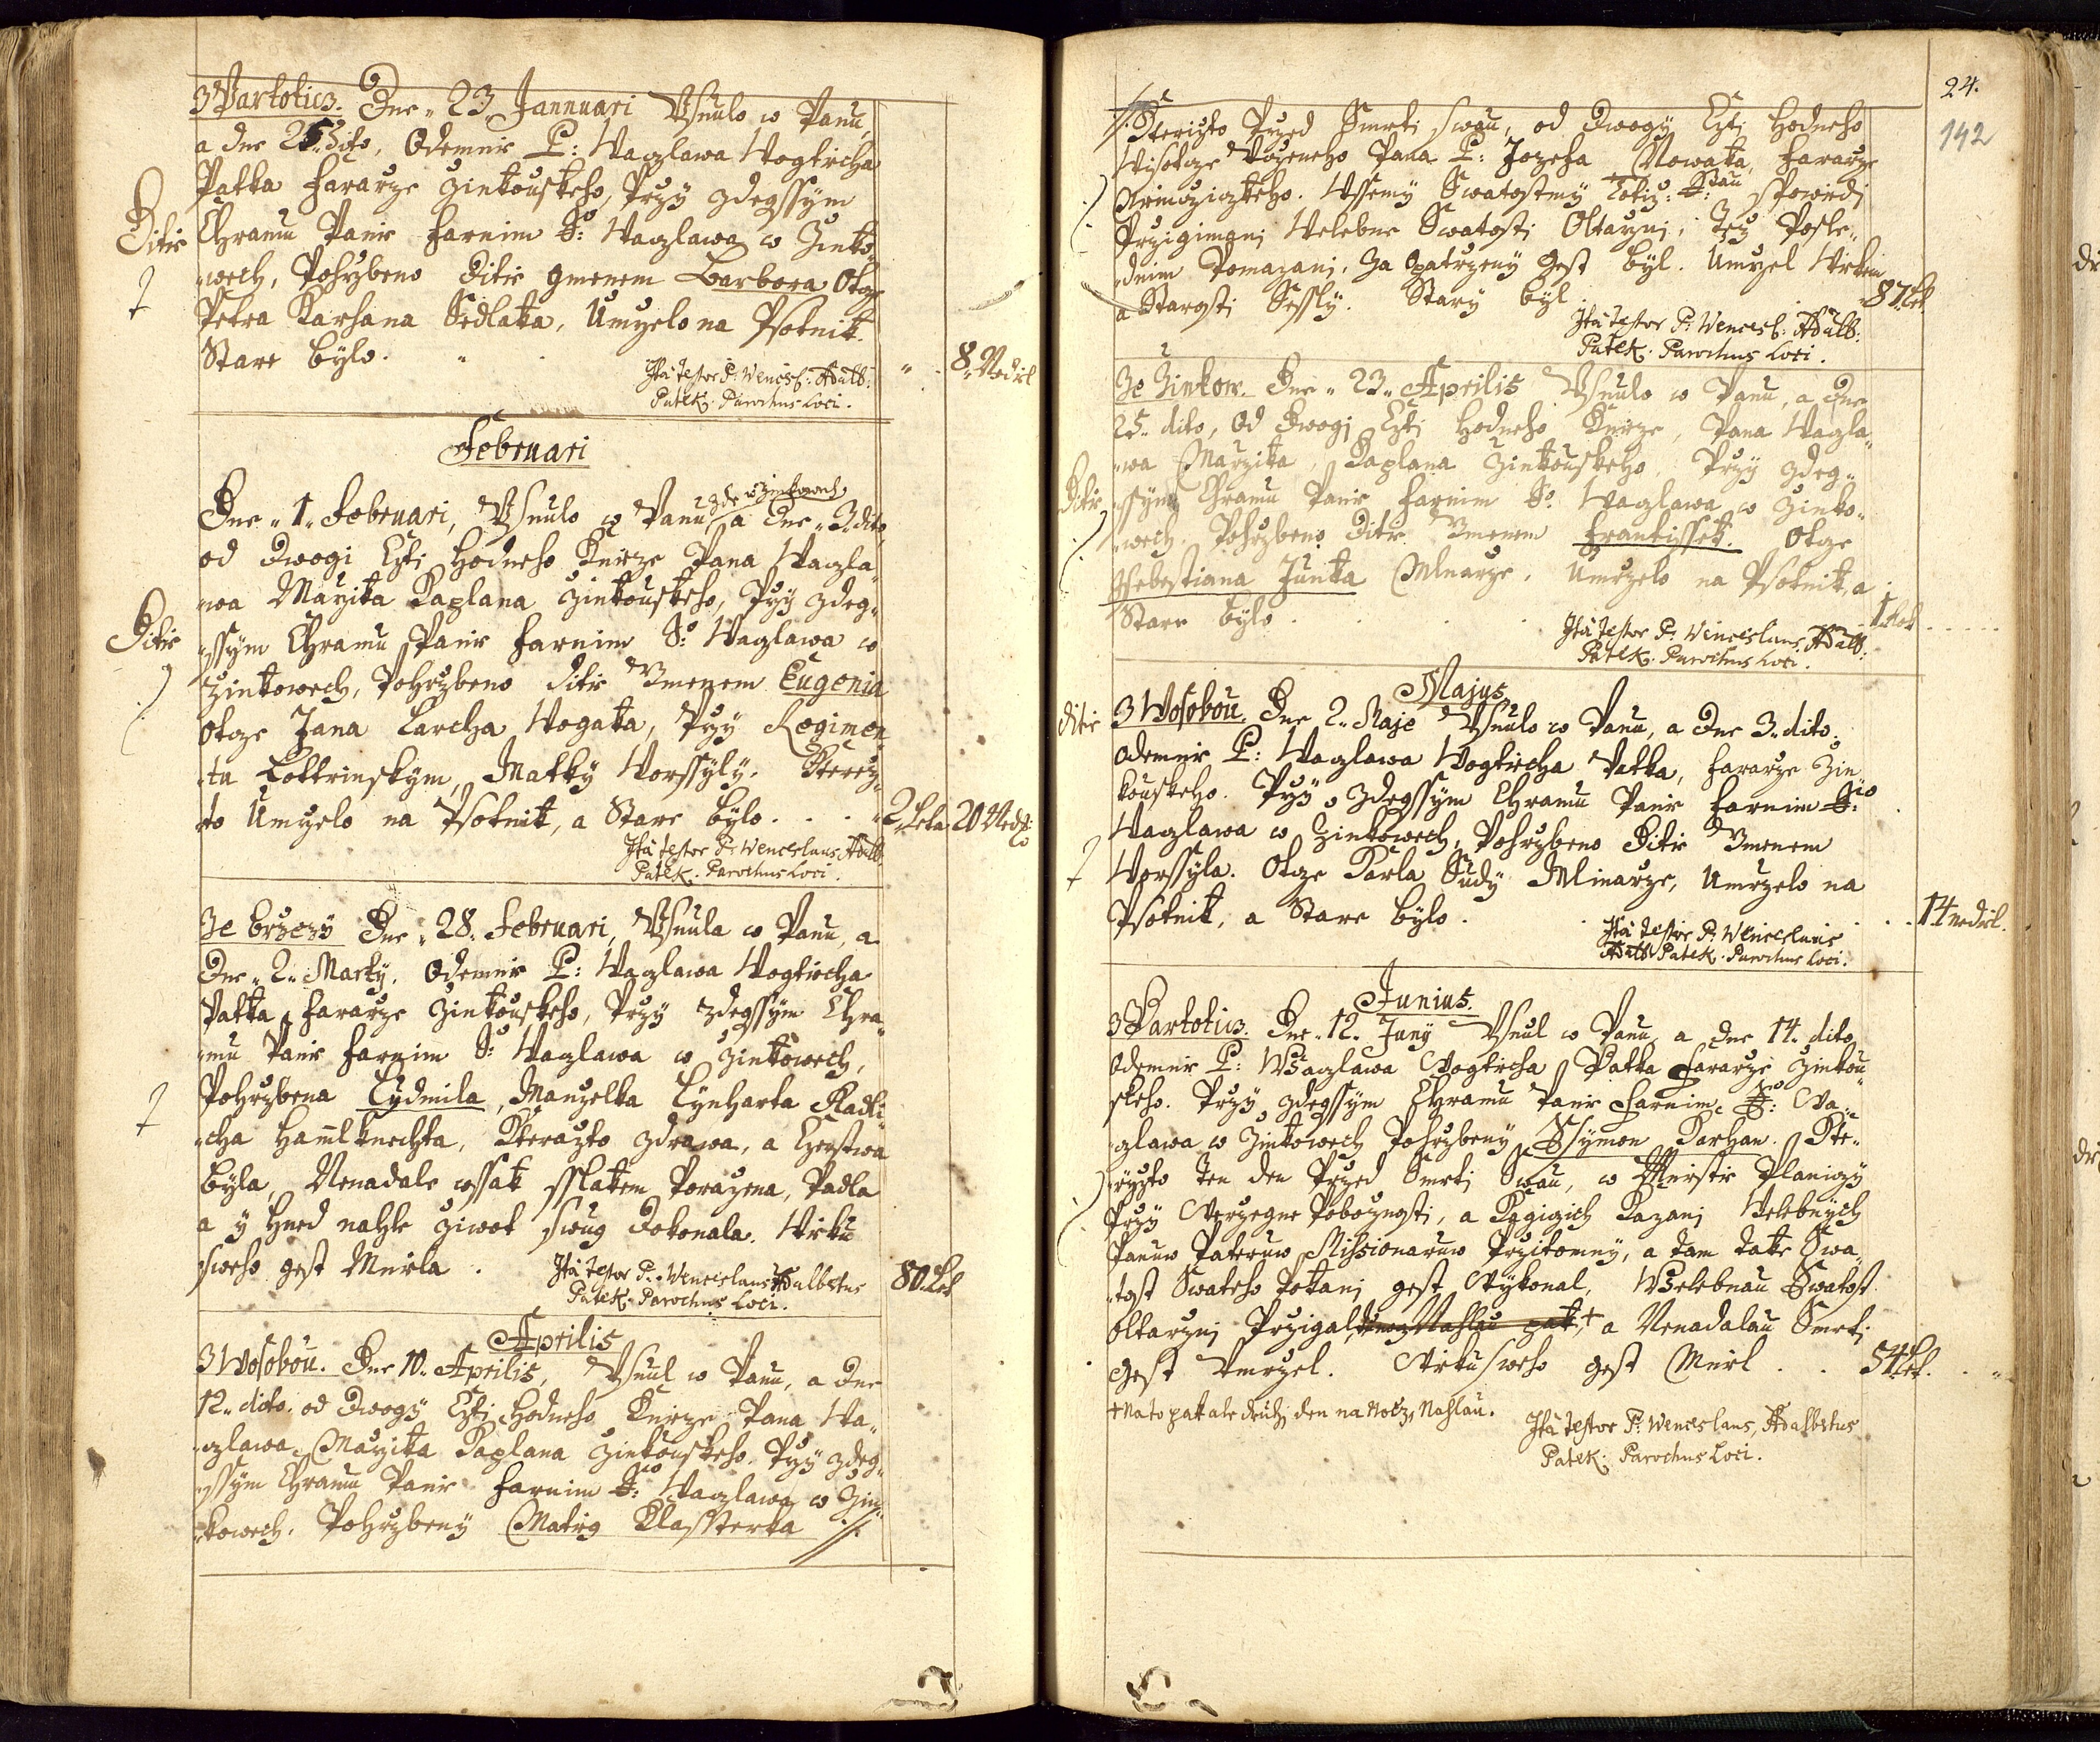 3 Partoticz. Dne „ 23. Jannuari Usnulo w Panu,
a dne 25. dito, Odemnie P: Waczlawa Wogticha
Patka Fararze Zinkouskeho, Przy zdegssym
Ditie
Chramu Panie Farnim S: Waczlawa w Zinko„
„wech, Pohrzbeno Ditie gmenem Barbora Otcze
Petra Karhana Sedlaka, Umrzelo na Psotnik.
Stare bylo. 8. Nediel
Ita Testor P: Wencesl: Adalb:
Patek. Parochus Loci.
Februari
Dne „ 1. Februari, Usnulo w Panu zde w Zinkowech, a dne „ 3. dito
od Dwogi Czti Hodneho Knieze Pana Waczla„
„wa Marzika Kaplana Zinkouskeho, Przy zdeg„
Ditie
„ssym Chramu Panie Farnim S: Waczlawa w
Zinkowech, Pohrzbeno Ditie Gmenem Eugenia
Otcze Jana Larcha Wogaka, Przy Regimen„
„tu Lottrinskym, Matky Worssyly. Kterez„
„to Umrzelo na Psotnik, a Stare bylo . . . 2. Leta 20 Ned:
Ita Testor P: Wenceslaus Adalb:
Patek. Parochus Loci.
Ze Brzezy Dne „ 28. Februari, Usnula w Panu, a
Dne „ 2. Marty. Odemnie P: Waczlawa Wogticha
Patka Fararze Zinkouskeho, Przy zdegssym Chra„
„mu Panie Farnim S: Waczlawa w Zinkowech,
Pohrzbena Lydmila, Manzelka Lynharta Radli„
„cha Hamlknechta, Kterazto zdrawa, a Czerstwa
byla, Nenadale wssak sslakem Porazena, Padla
a y hned nahle Ziwot swug Dokonala. Wieku
sweho gest Miela. 80. Let
Ita Testor P: Wenceslaus Adalbertus
Patek. Parochus Loci.
Aprilis
3 Wosobou. Dne 10. Aprilis, Usnul w Panu, a Dne
12. dito. od Dwogy Czti Hodneho Knieze Pana Wa„
„czlawa Marzika Kaplana Zinkouskeho. Przy zdeg„
„ssym Chramu Panie Farnim S: Waczlawa w Zin„
„kowech. Pohrzbeny Matieg Klassterka ./.
24.
142
./. Kterizto Przed Smrti swau, od Dwogy Czti Hodneho
Wisocze Wazeneho Pana P: Jozefa Nowaka, Fararze
Wssemy Swatostmy Totiz: S: Stau Spowiedi
Przigimani Welebne Swatosti Oltarzni, Tez Posle„
„dnim Pomazani, Zaopatrzeny Gest byl. Umrzel Wiekem
a Starosti Sessly. Stary byl . 87. Let.
Ita Testor P: Wencesl: Adalb:
Patek. Parochus Loci.
Ze Zinkow. Dne „ 23. Aprilis Usnulo w Panu, a Dne
25. dito, Od Dwogi Czti Hodneho Knieze, Pana Waczla„
„wa Marzika, Kaplana Zinkouskeho. Przy zdeg„
Ditie
„ssym Chramu Panie Farnim S: Waczlawa w Zinko„
„wech. Pohrzbeno Ditie Gmenem Frantissek. Otcze
Ssebestiana Junka Mlnarze. Umrzelo na Psotnik, a
Stare bylo . . . 1. Rok
Ita Testor P: Wenceslaus, Adalb:
Patek. Parochus Loci.
Majus
Ditie
3 Wosobou. Dne 2. Maje Usnulo w Panu, a Dne 3. dito.
Odemnie P: Waczlawa Wogticha Patka, Fararze Zin„
kouskeho. Przy zdegssym Chramu Panie Farnim S:
Waczlawa w Zinkowech, Pohrzbeno Ditie Gmenem
Worssyla. Otcze Karla Sudy Mlinarze, Umrzelo na
Psotnik, a Stare bylo . . . 14 nediel.
Ita Testor P: Wenceslaus
Adalb Patek. Parochus Loci.
Junius.
3 Partoticz. Dne „ 12. Juny Usnul w Panu, a dne 14. dito
Odemnie P: Waczlawa Wogticha Patka Fararze Zinkou„
skeho. Przy zdegssym Chramu Panie Farnim S: Wa„
„czlawa w Zinkowech Pohrzbeny Ssymon Karhan. Kte„
„ryzto Ten den Przed Smrti Swau, w Miestie Planiczy
Przy Werzegne Poboznosti, a Kagigich Kazani Welebnych
Panuw Pateruw Missionaruw Przitomny, a tam take Swa„
„tost Swateho Pokani gest Wykonal, Welebnau Swatost
Oltarzni Przigal, + a Nenadalau Smrti
gest Umrzel. Wieku sweho gest Miel . . 54. Let.
+ Na to pak ale druhy den na Nocz, Nahlau.
Ita Testor P: Wenceslaus, Adalbertus
Patek. Parochus Loci.